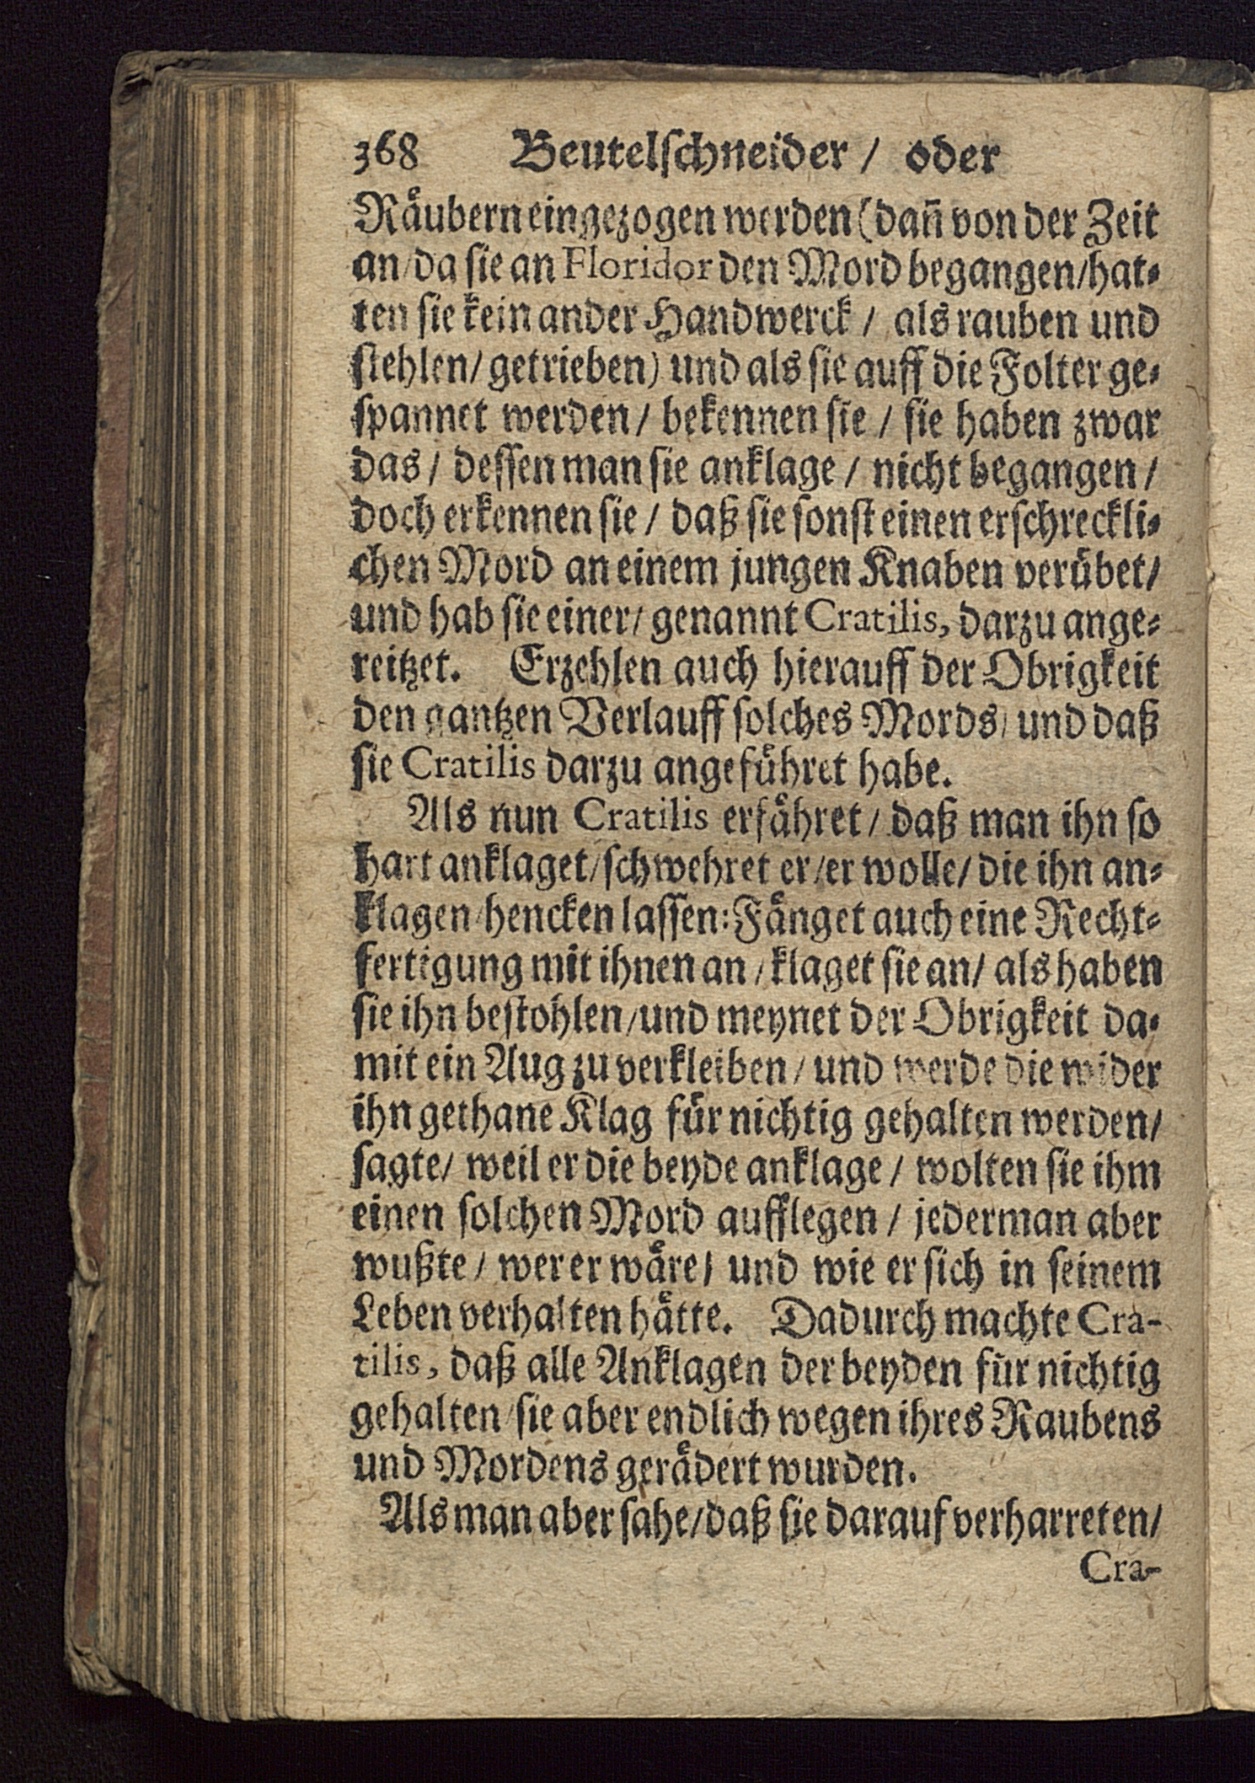 368 Beutelschneider / oder
Räubern eingezogen werden (dañ von der Zeit
an / da sie an Floridor den Mord begangen / hat-
ten sie kein ander Handwerck / als rauben und
stehlen / getrieben) und als sie auff die Folter ge-
spannet werden / bekennen sie / sie haben zwar
das / dessen man sie anklage / nicht begangen /
doch erkennen sie / daß sie sonst einen erschreckli-
chen Mord an einem jungen Knaben verübet /
und hab sie einer / genannt Cratilis, darzu ange-
reitzet. Erzehlen auch hierauff der Obrigkeit
den gantzen Verlauff solches Mords / und daß
sie Cratilis darzu angeführet habe.
Als nun Cratilis erfähret / daß man ihn so
hart anklaget / schwehret er / er wolle / die ihn an-
klagen / hencken lassen: Fänget auch eine Recht-
fertigung mit ihnen an / klaget sie an / als haben
sie ihn bestohlen / und meynet der Obrigkeit da-
mit ein Aug zu verkleiben / und werde die wider
ihn gethane Klag für nichtig gehalten werden /
sagte / weil er die beyde anklage / wolten sie ihm
einen solchen Mord aufflegen / jederman aber
wußte / wer er wäre / und wie er sich in seinem
Leben verhalten hätte. Dadurch machte Cra-
tilis, daß alle Anklagen der beyden für nichtig
gehalten / sie aber endlich wegen ihres Raubens
und Mordens gerädert wurden.
Als man aber sahe / daß sie darauf verharreten /
Cra-